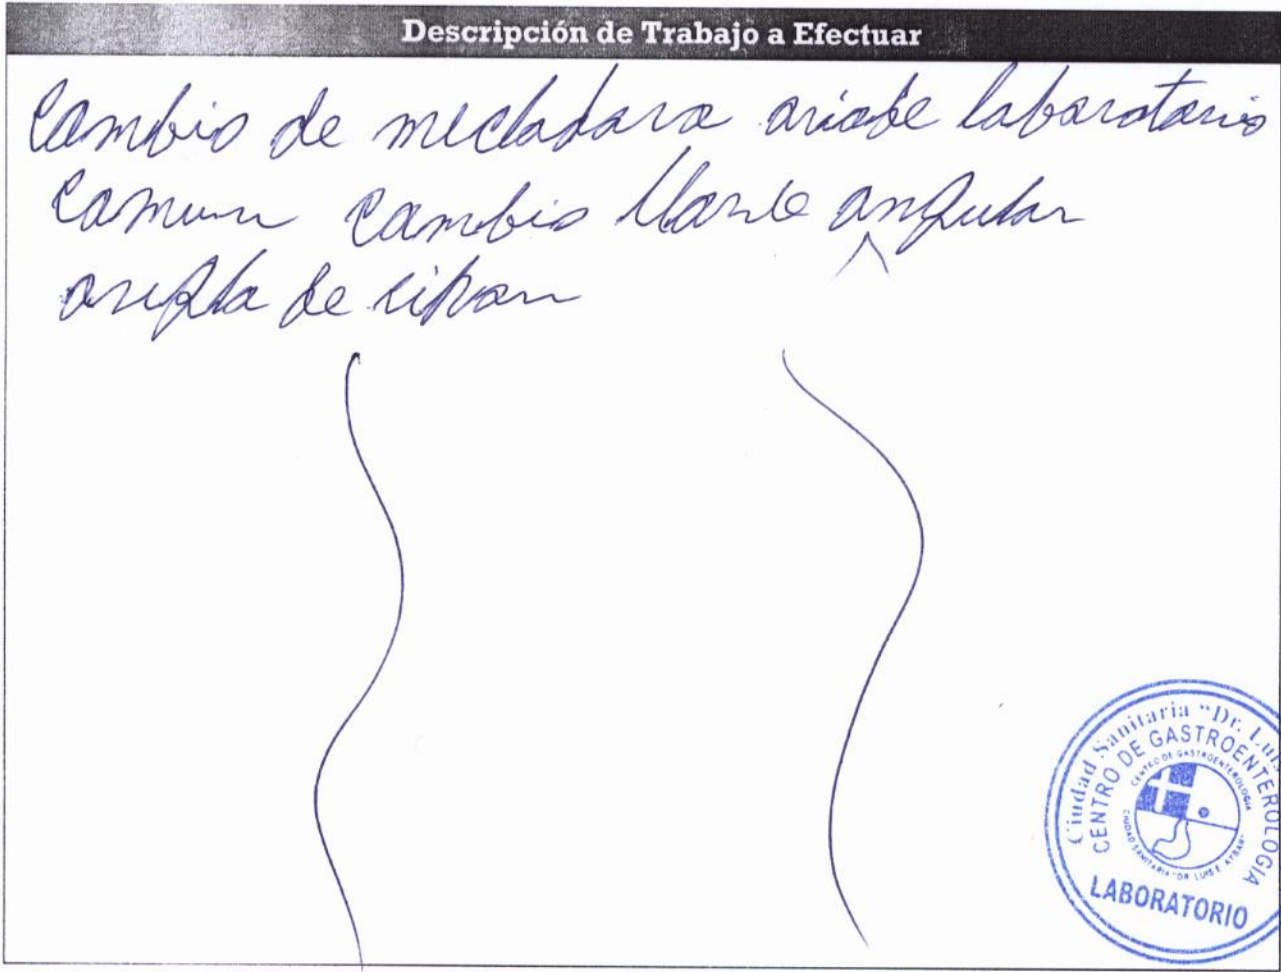 Descripción de Trabajo a Efectuar
Cambio de mecladara laboratorio
Comun cambio llave angular
de
Ciudad Sanitaria "Dr. Luis
CENTRO DE GASTROENTEROLOGIA
CENTRO DE GASTROENTEROLOGIA
CIUDAD SANITARIA "DR LUIS E. AYBAR"
LABORATORIO